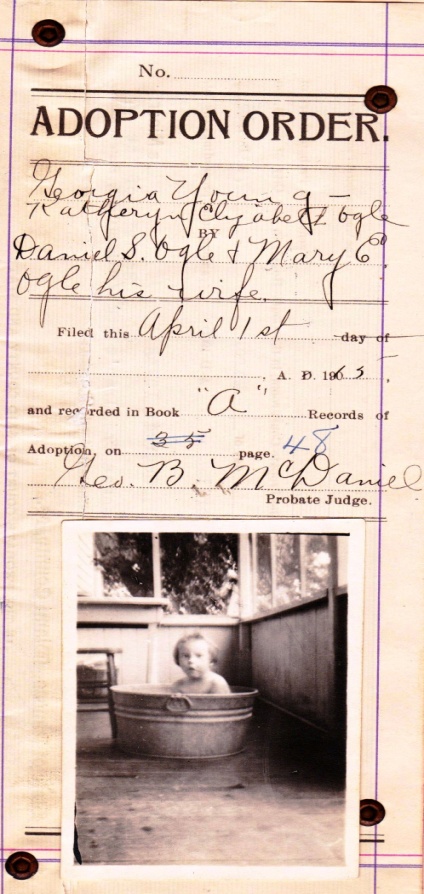 No.
ADOPTION ORDER.
Georgia Young -
Katheryn Elyzabeth Ogle
BY
Daniel S. Ogle & Mary C
Ogle his wife.
Filed this April 1st day of
, A. D. 190
and recorded in Book "A" Records of
Adoption, on 35 page. 48
Geo. B. McDaniel
Probate Judge.